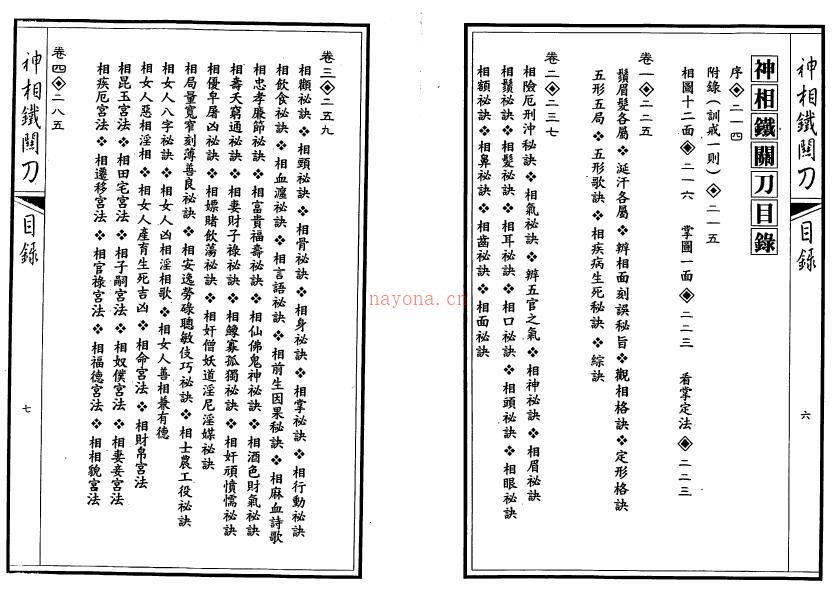 神相鐵關刀
目錄
六
神相鐵關刀目錄
序◈二一四
附錄(訓戒一則)◈二一五
相圖十二面◈二一六 掌圖一面◈二二三 看掌定法◈二二三
卷一◈二二五
鬚眉髮各屬❖涎汗各屬❖辨相面刻誤秘旨❖觀相格訣❖定形格訣
五形五局❖五形歌訣❖相疾病生死秘訣❖綜訣
卷二◈二三七
相險厄刑沖秘訣❖相氣祕訣❖辨五官之氣❖相神祕訣❖相眉祕訣
相鬚祕訣❖相髮祕訣❖相耳祕訣❖相口祕訣❖相頭祕訣❖相眼祕訣
相額祕訣❖相鼻祕訣❖相齒祕訣❖相面祕訣
卷三◈二五九
相顴祕訣❖相頸祕訣❖相骨祕訣❖相身祕訣❖相掌祕訣❖相行動祕訣
相飲食祕訣❖相血瀝祕訣❖相言語祕訣❖相前生因果秘訣❖相麻血詩歌
相忠孝廉節祕訣❖相富貴福壽祕訣❖相仙佛鬼神祕訣❖相酒色財氣祕訣
相壽夭窮通祕訣❖相妻財子祿祕訣❖相鰥寡孤獨祕訣❖相奸頑憤懦祕訣
相優卑屠凶祕訣❖相嫖賭飲蕩祕訣❖相奸僧妖道淫尼淫媒祕訣
相局量寬窄刻薄善良祕訣❖相安逸勞碌聰敏伎巧祕訣❖相士農工役祕訣
相女人八字祕訣❖相女人凶相淫相歌❖相女人善相兼有德
相女人惡相淫相❖相女人產育生死吉凶❖相命宮法❖相財帛宮法
相昆玉宮法❖相田宅宮法❖相子嗣宮法❖相奴僕宮法❖相妻妾宮法
相疾厄宮法❖相遷移宮法❖相官祿宮法❖相福德宮法❖相相貌宮法
卷四◈二八五
神相鐵關刀
目錄
七
nayona.cn